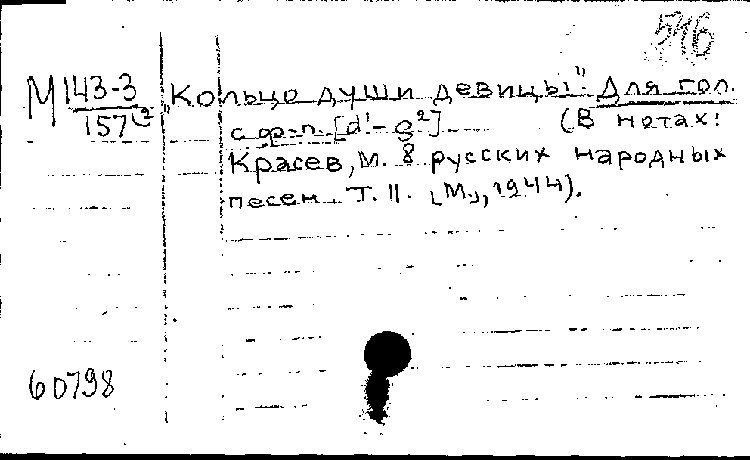 516
М 143-3 "Кольцо души девицы". Для гол.
157 с ф-п. [d¹-g²] (В нотах:
Красев, М. 8 русских народных
песен. Т. II. [М.], 1944).
60798